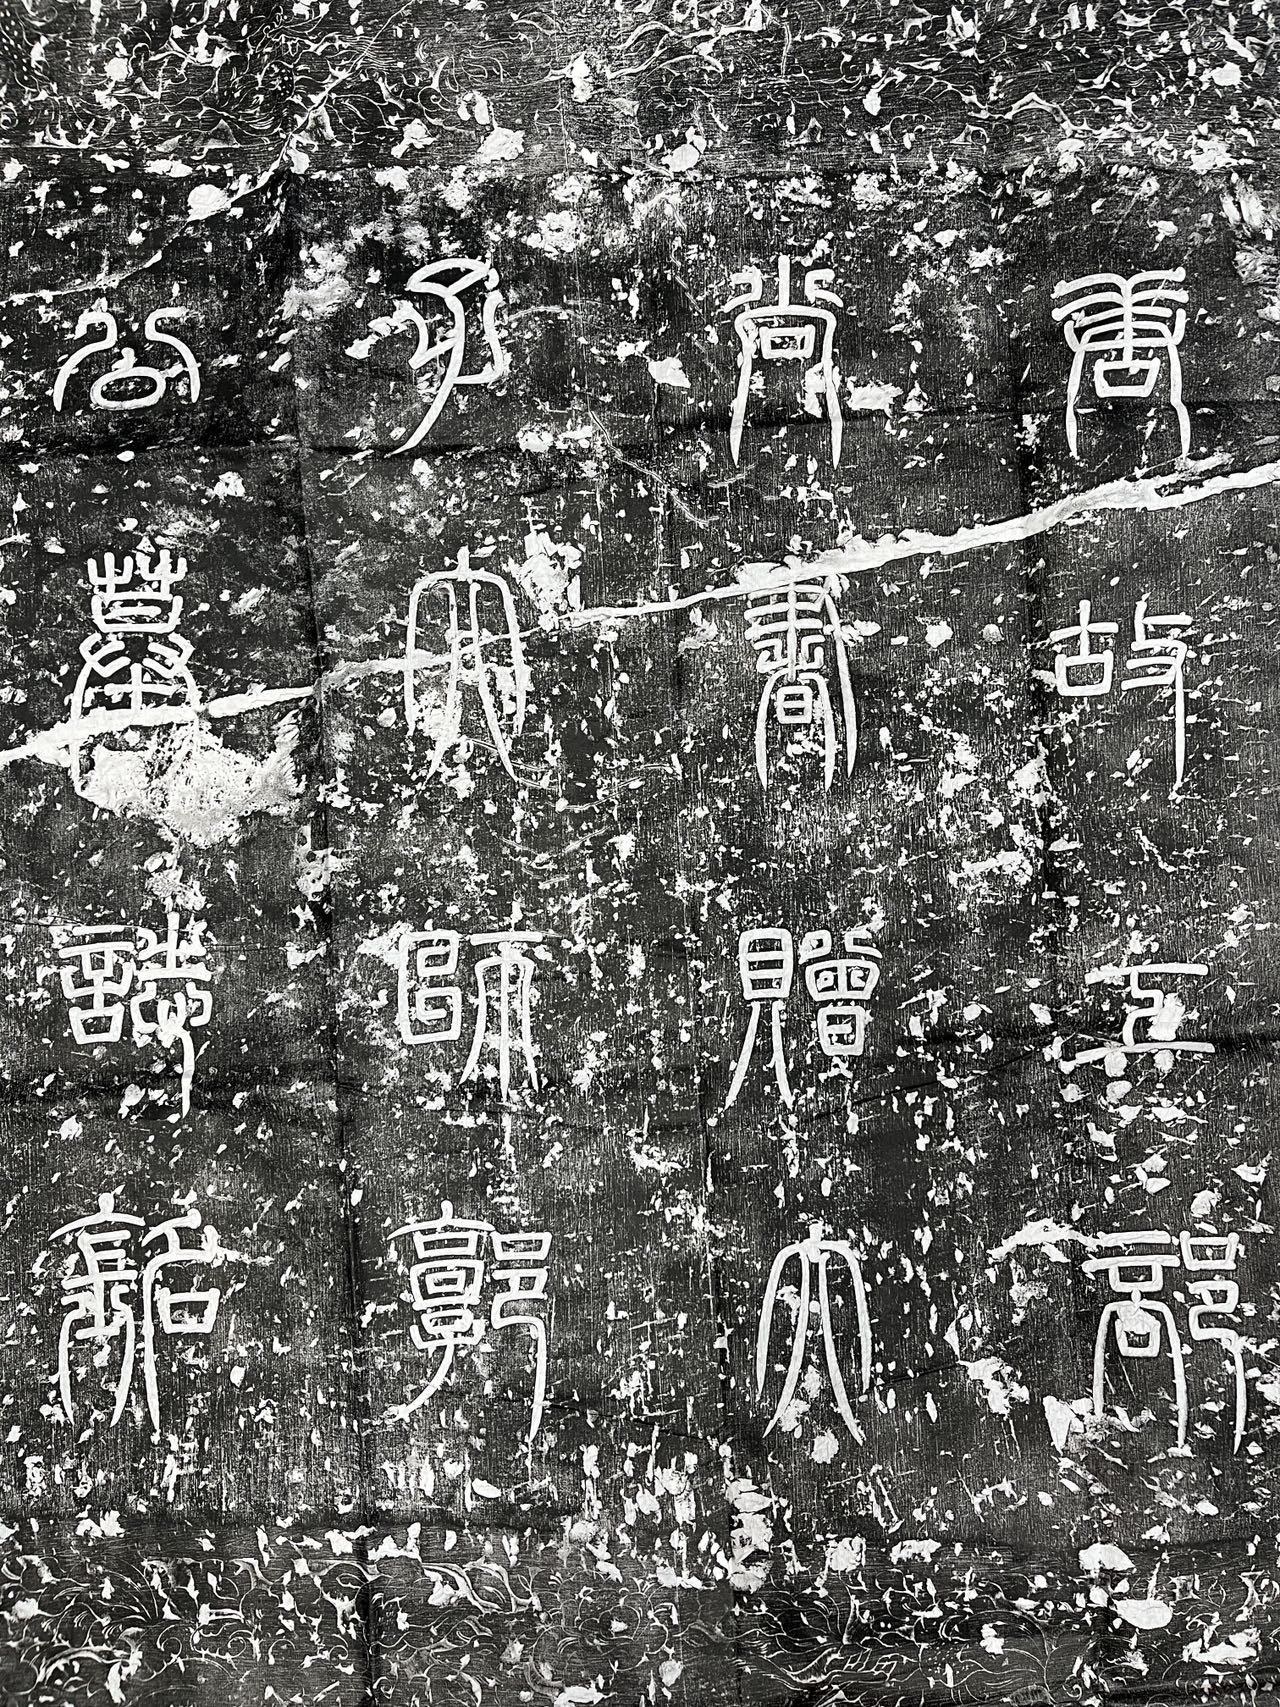 唐故工部
尚書贈太
子太師郭
公墓誌銘